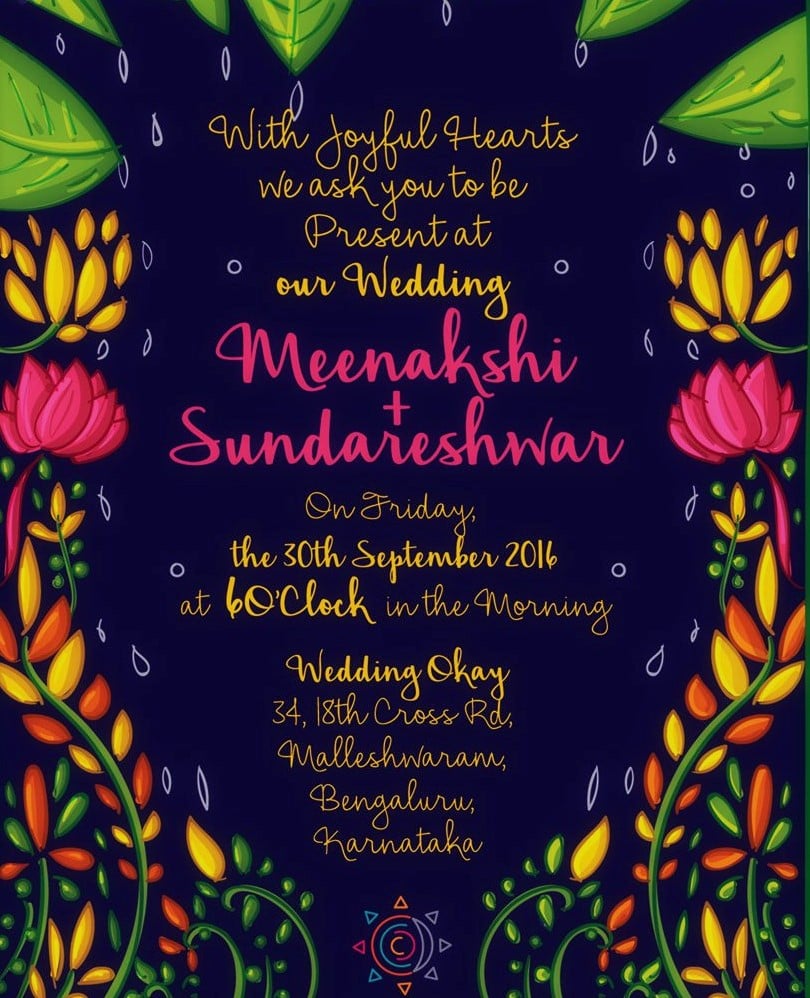 With Joyful Hearts
we ask you to be
Present at
our Wedding
Meenakshi
+
Sundareshwar
On Friday,
the 30th September 2016
at 6O'Clock in the Morning
Wedding Okay
34, 18th Cross Rd,
Malleshwaram,
Bengaluru,
Karnataka